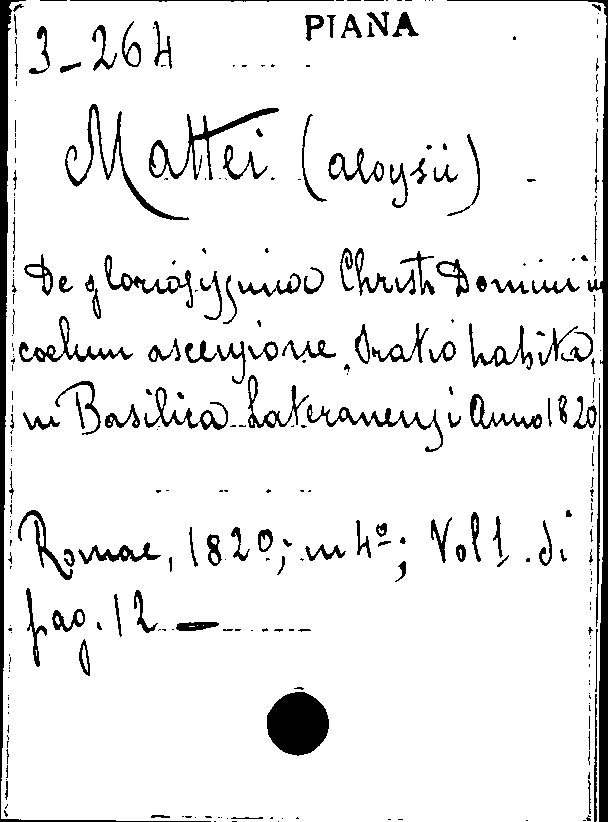 PIANA
3-264
Mattei (Aloysii)
De gloriosissimo Christi Domini in
coelum ascensione, Oratio habita
in Basilica Lateranensi Anno 1820
Romae, 1820; in 4º; Vol 1. di
pag. 12 —